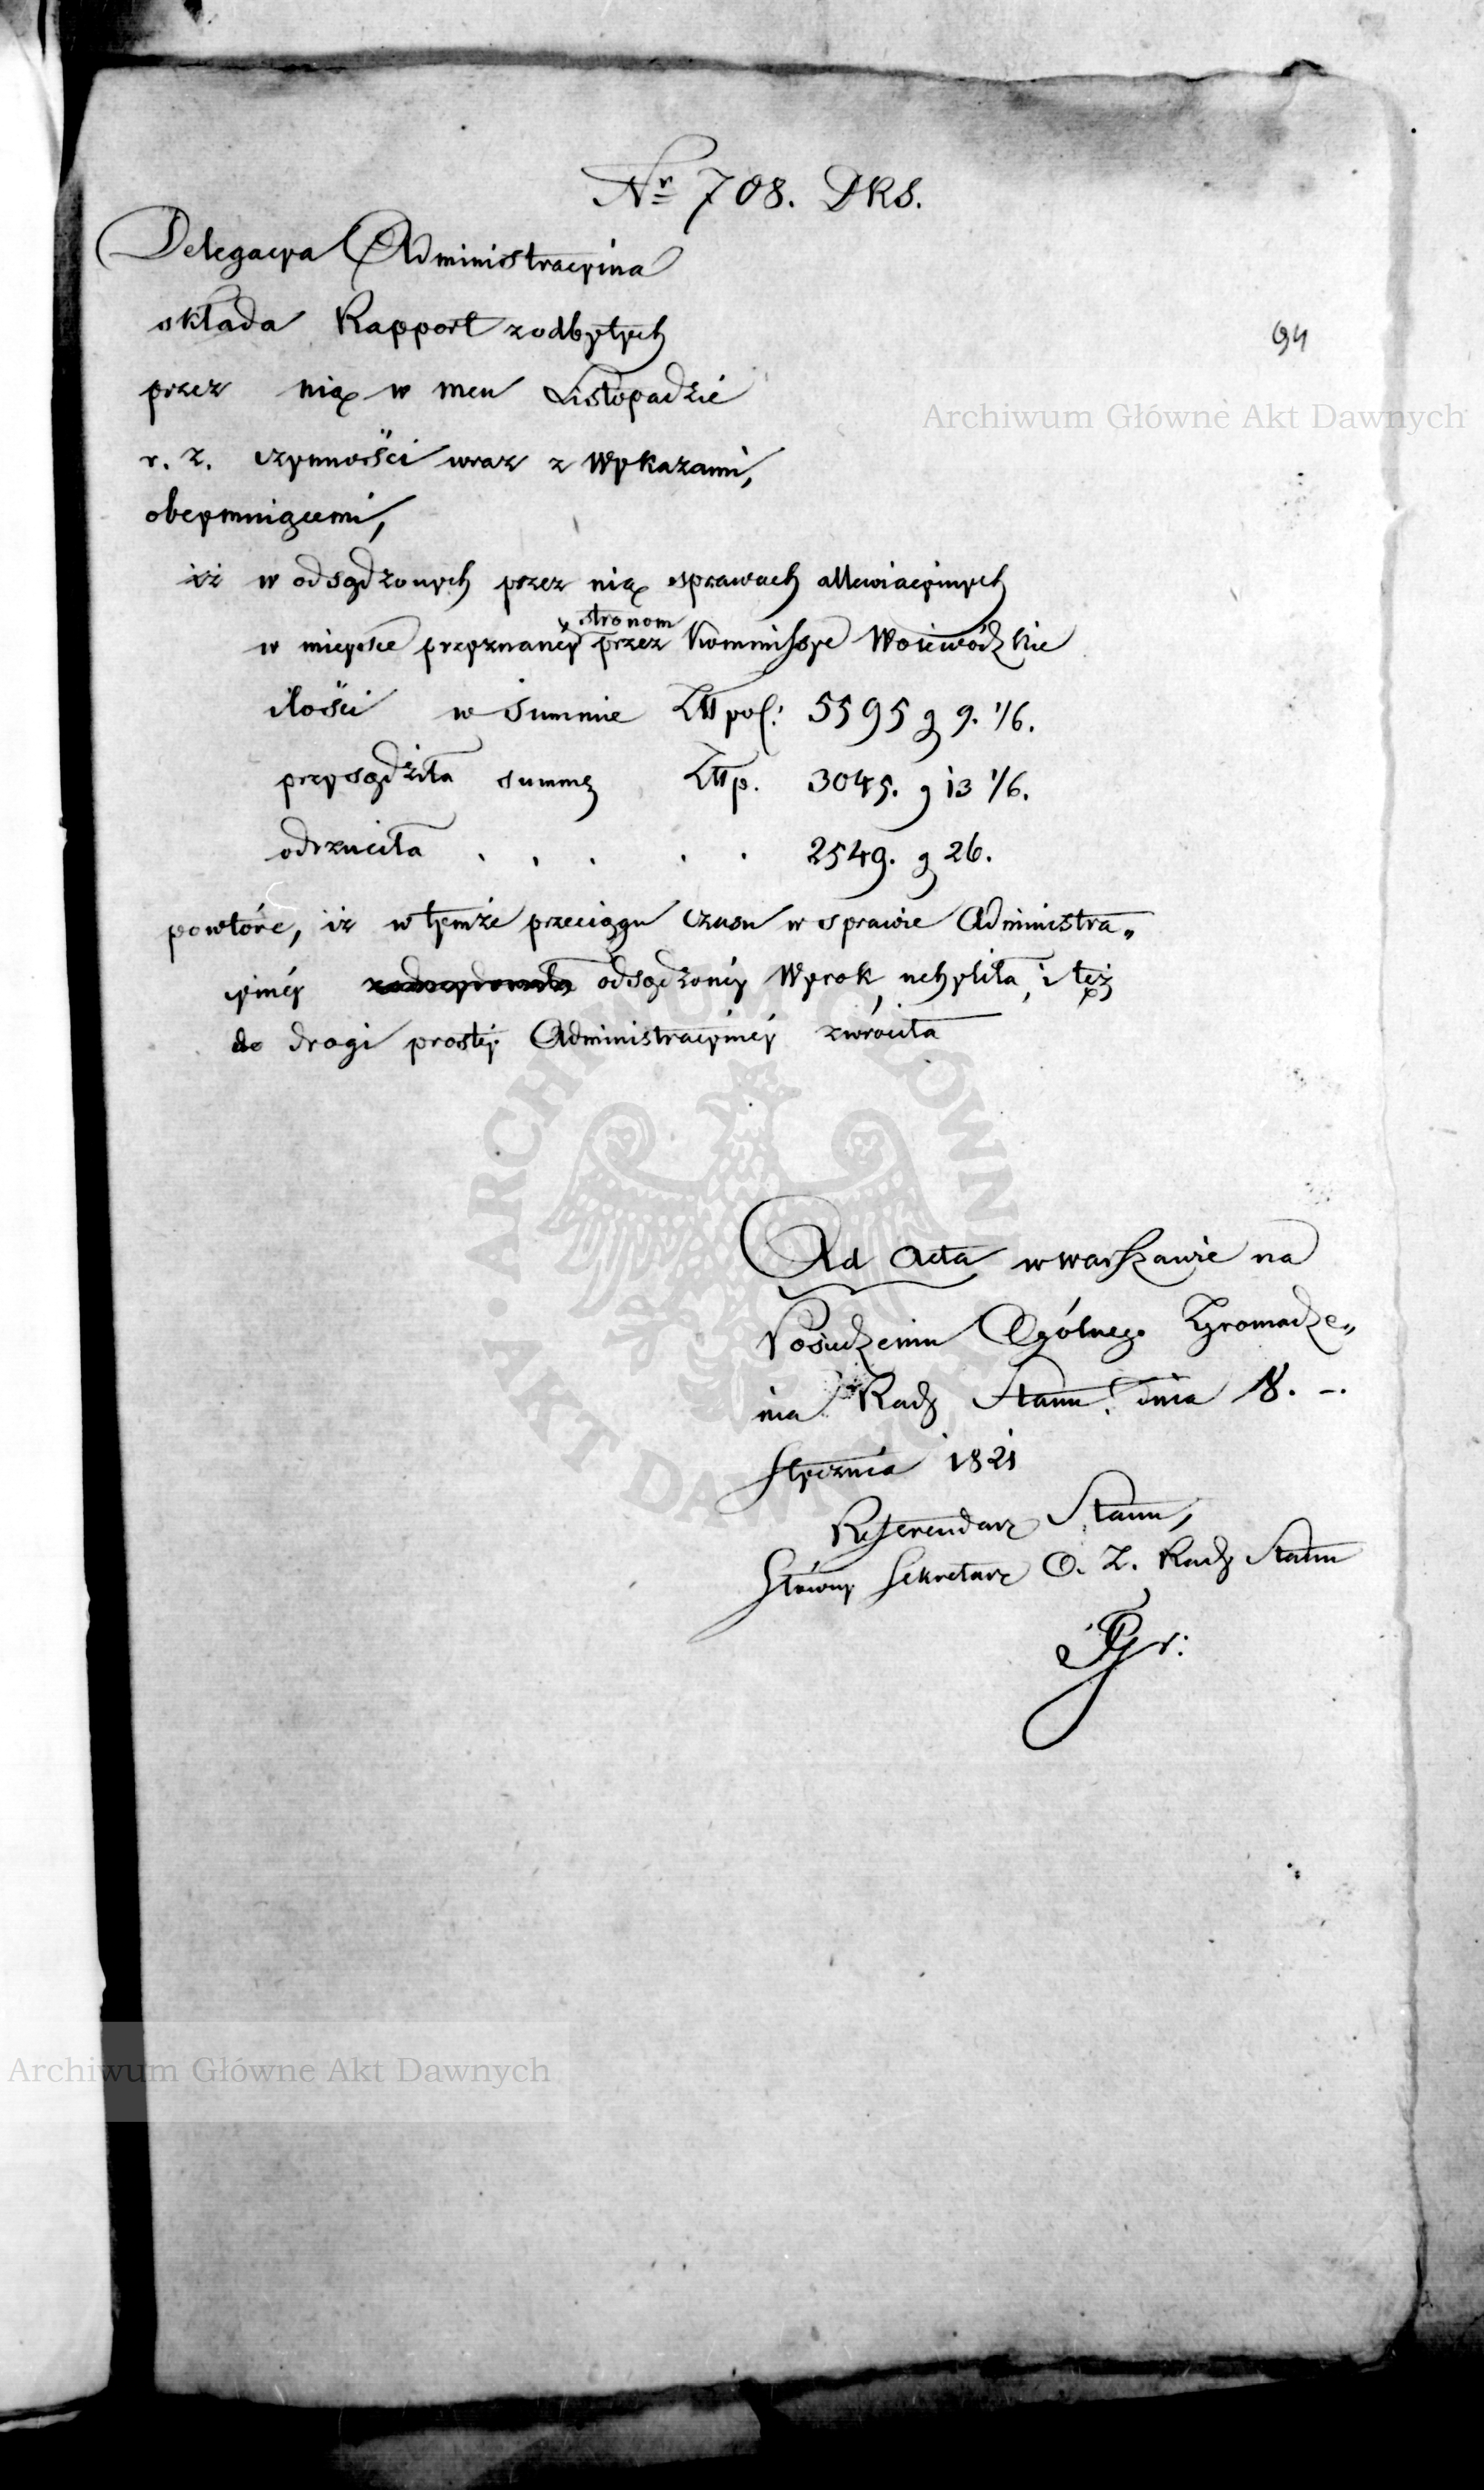 Nr 708. DRS.
Delegacya Administracyina
składa Rapport z odbytych
94
przez nią w mcu Listopadzie
r. z. czynności wraz z Wykazami,
obeymuiącemi,
iż w odsądzonych przez nią sprawach allewiacyinych
stronom
w mieysce przyznaney przez Kommissye Woiewódzkie
ilości w Summie Złł pol: 5595 g 9. 1/6.
przysądziła summę Złłp. 3045. g 13 1/6.
odrzuciła . . . . . 2549. g 26.
powtóre, iż w tymże przeciągu czasu w sprawie Administra„
yiney odsądzoney Wyrok uchyliła, i tęż
do drogi prostey Administracyiney zwróciła
Ad Acta w Warszawie na
Posiedzeniu Ogólnego Zgromadze„
nia Rady Stanu. dnia 18. –.
Stycznia 1821
Referendarz Stanu,
Główny Sekretarz O. Z. Rady Stanu
Archiwum Główne Akt Dawnych
ARCHIWUM GŁÓWNE AKT DAWNYCH
Archiwum Główne Akt Dawnych